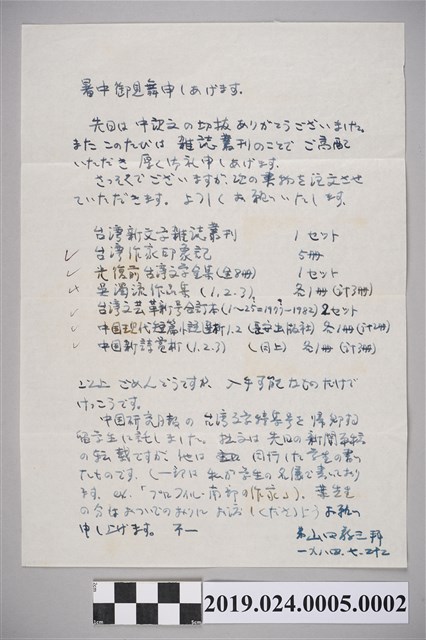 暑中御見舞申しあげます。
先日は中訳文の切抜ありがとうございました。
またこのたびは雑誌叢刊のことでご高配
いただき厚く御礼申しあげます。
さっそくでございますが次の書物を注文させ
ていただきます。よろしくお願いいたします。
台湾新文学雑誌叢刊 1セット
台湾作家印象記 5冊
光復前台湾文学全集(全8冊) 1セット
吳濁流作品集(1.2.3) 各1冊(計3冊)
台湾文芸革新号合訂本(1〜25=1977〜1982) 2セット
中国現代短篇小説選析1.2(長安出版社) 各1冊(計2冊)
中国新詩賞析(1.2.3) (同上) 各1冊(計3冊)
以上 ごめんどうですが、入手可能なものだけで
けっこうです。
中国研究月報の台湾文学特集号を帰郷する
留学生に託しました。拙文は先日の新聞
の転載ですが、他は 同行した学生の書い
たものです。(一部は私が学生の名儀で書いており
ます。ex.「プロフィル・南部の作家」)。葉先生
の分はおついでのおりに お渡しくださるようお願い
申し上げます。 不一
山口
一九八四、七、
2019.024.0005.0002